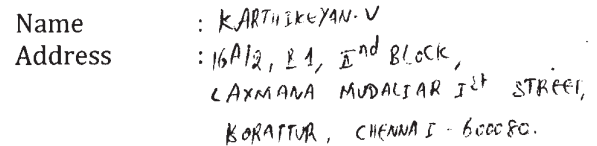 Name : KARTHIKEYAN.V
Address : 16A/2, E1, IInd BLOCK,
LAXMANA MUDALIAR Ist STREET,
KORATTUR, CHENNAI - 600080.